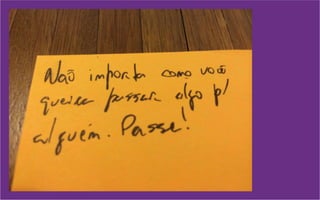 Não importa como você
queira passar algo p/
alguém. Passe!